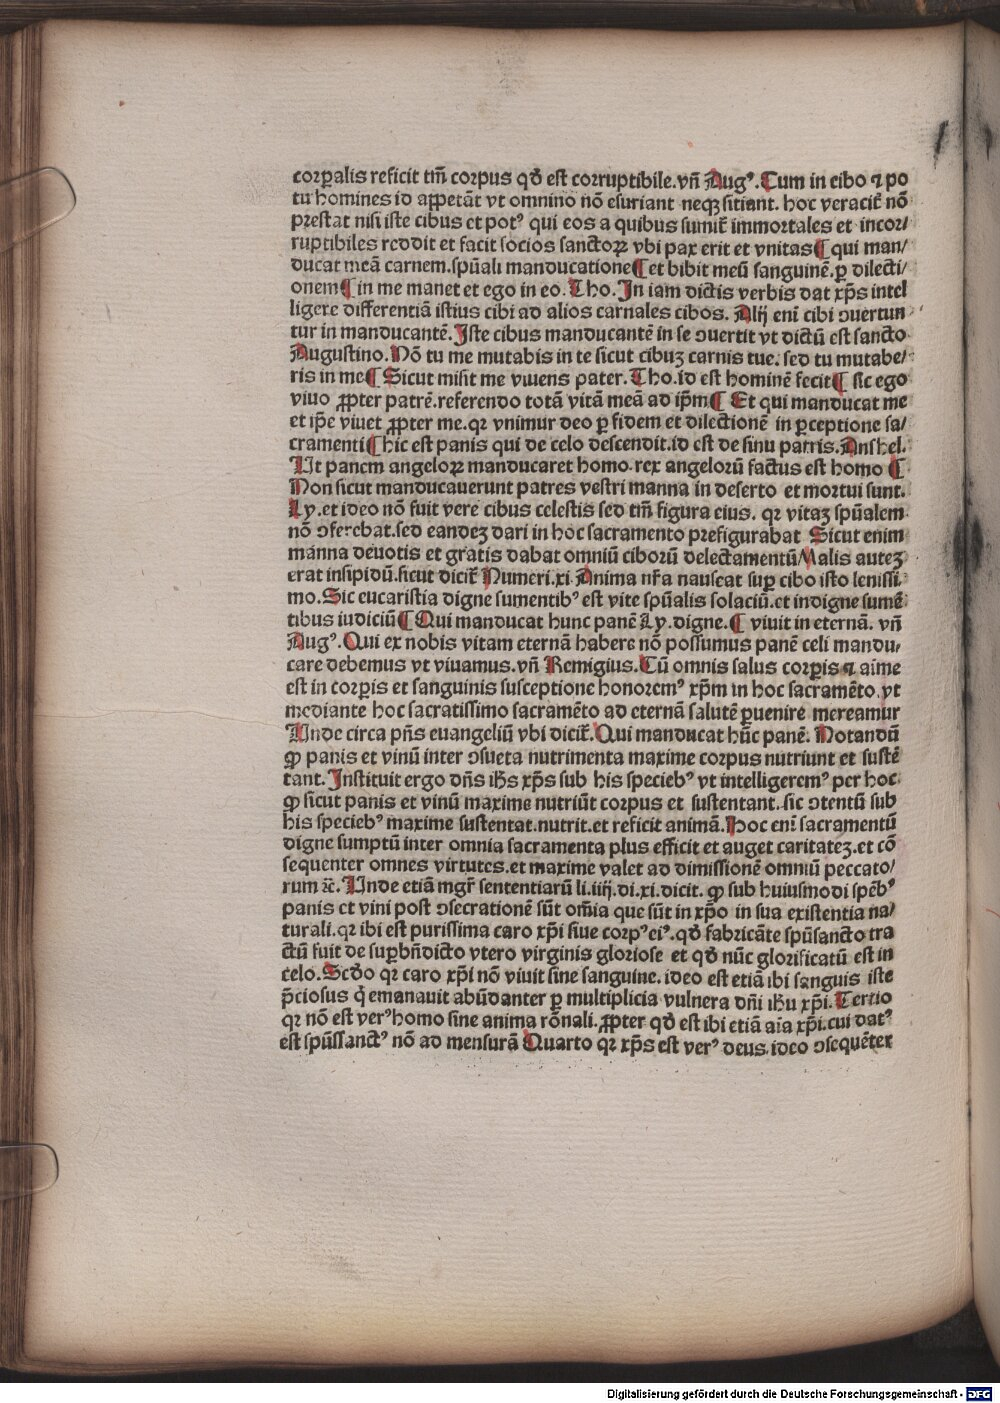 corꝑalis reficit tm̄ corpus qđ est corruptibile.vn̄ Augꝰ.Cum in cibo ⁊ po
tu homines id appetāt vt omnino nō esuriant neqꝫ sitiant. hoc veracit᷑ nō
prestat nisi iste cibus et potꝰ qui eos a quibus sumit᷑ immortales et incor/
ruptibiles reddit et facit socios sanctoꝝ vbi pax erit et vnitas¶ qui man/
ducat meā carnem.spūali manducatione¶ et bibit meū sanguinē.ꝑ dilecti/
onem¶ in me manet et ego in eo. Tho. In iam dictis verbis dat xp̄s intel
ligere differentiā istius cibi ad alios carnales cibos. Alij enī cibi ↄuertun
tur in manducantē. Iste cibus manducantē in se ↄuertit vt dictū est sancto
Augustino. Nō tu me mutabis in te sicut cibuꝫ carnis tue. sed tu mutabe/
ris in me¶ Sicut misit me viuens pater. Tho. id est hominē fecit¶ sic ego
viuo ꝓpter patrē.referendo totā vitā meā ad ip̄m¶ Et qui manducat me
et ip̄e viuet ꝓpter me.qꝛ vnimur deo ꝑ fidem et dilectionē in ꝑceptione sa/
cramenti¶ hic est panis qui de celo descendit.id est de sinu patris. Anshel.
Ut panem angeloꝝ manducaret homo.rex angelorū factus est homo ¶
Non sicut manducauerunt patres vestri manna in deserto et mortui sunt.
Ly.et ideo nō fuit vere cibus celestis sed tm̄ figura eius. qꝛ vitaꝫ spūalem
nō ↄferebat.sed eandeꝫ dari in hoc sacramento prefigurabat Sicut enim
manna deuotis et gratis dabat omniū ciborū delectamentū Malis auteꝫ
erat insipidū.sicut dicit᷑ Numeri.xi.Anima nr̄a nauseat suꝑ cibo isto leuissi
mo.Sic eucaristia digne sumentibꝰ est vite spūalis solaciū.et indigne sumē
tibus iudiciū¶ Qui manducat hunc panē Ly.digne.¶ viuit in eternā. vn̄
Augꝰ.Qui ex nobis vitam eternā habere nō possumus panē celi mandu/
care debemus vt viuamus.vn̄ Remigius.Cū omnis salus corꝑis ⁊ aīme
est in corꝑis et sanguinis susceptione honoremꝰ xp̄m in hoc sacramēto.vt
mediante hoc sacratissimo sacramēto ad eternā salutē ꝑuenire mereamur
Unde circa pn̄s euangeliū vbi dicit᷑.Qui manducat hūc panē. Notandū
ꝙ panis et vinū inter ↄsueta nutrimenta maxime corpus nutriunt et sustē
tant.Instituit ergo dn̄s ih̄s xp̄s sub his speciebꝰ vt intelligeremꝰ per hoc
ꝙ sicut panis et vinū maxime nutriūt corpus et sustentant.sic ↄtentū sub
his speciebꝰ maxime sustentat.nutrit.et reficit animā.Hoc enī sacramentū
digne sumptū inter omnia sacramenta plus efficit et auget caritateꝫ.et cō
sequenter omnes virtutes.et maxime valet ad dimissionē omniū peccato/
rum ⁊c̄. Unde etiā mgr̄ sententiarū li.iiij.di.xi.dicit. ꝙ sub huiusmodi spēbꝰ
panis et vini post ↄsecrationē sūt om̄ia que sūt in xp̄o in sua existentia na/
turali.qꝛ ibi est purissima caro xp̄i siue corpꝰ eiꝰ.qđ fabricāte spūsancto tra
ctū fuit de suꝑbn̄dicto vtero virginis gloriose et qđ nūc glorificatū est in
celo.Scđo qꝛ caro xp̄i nō viuit sine sanguine. ideo est etiā ibi sanguis iste
p̄ciosus q̇ emanauit abūdanter ꝑ multiplicia vulnera dn̄i ih̄u xp̄i. Tertio
qꝛ nō est verꝰ homo sine anima rōnali. ꝓpter qđ est ibi etiā aīa xp̄i.cui datꝰ
est spūssanctꝰ nō ad mensurā Quarto qꝛ xp̄s est verꝰ deus.ideo ↄsequēter
Digitalisierung gefördert durch die Deutsche Forschungsgemeinschaft - DFG